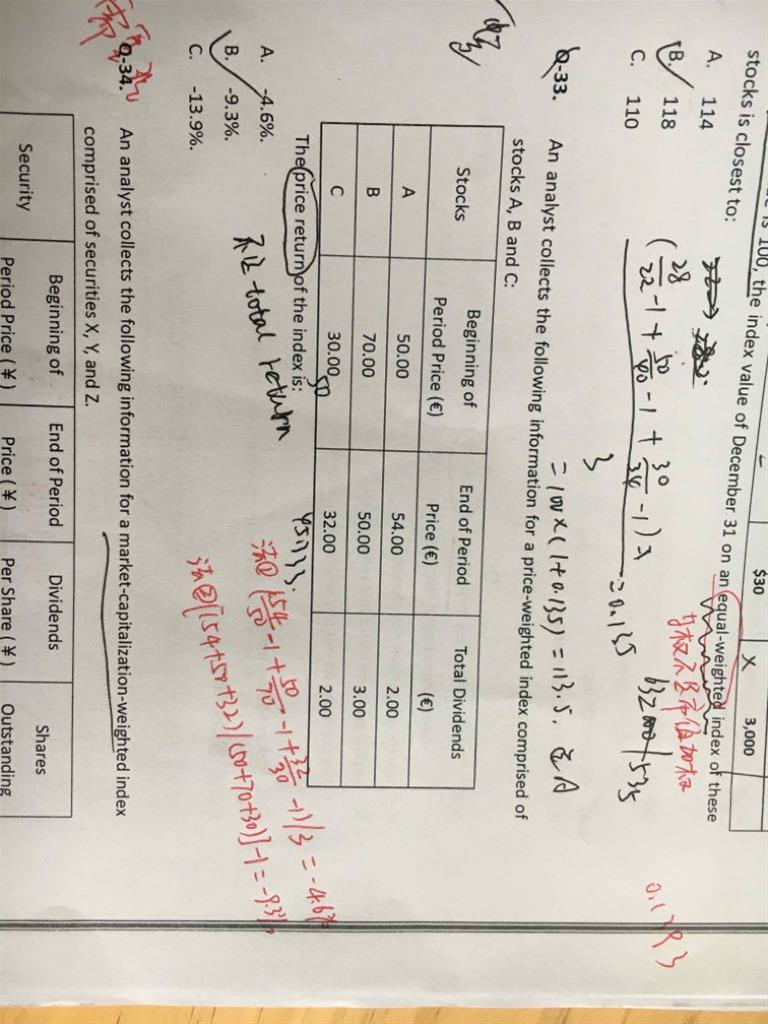 $30 X 3,000
is 100, the index value of December 31 on an equal-weighted index of these
stocks is closest to:
A. 114
B. 118
C. 110
(28/22 -1 + 50/40 -1 + 30/34 -1) / 3 = 0.135
= 100×(1+0.135) = 113.5. 选A
0.1393
Q-33. An analyst collects the following information for a price-weighted index comprised of
stocks A, B and C:
Stocks
Beginning of
Period Price (€)
End of Period
Price (€)
Total Dividends
(€)
A 50.00 54.00 2.00
B 70.00 50.00 3.00
C 30.00 32.00 2.00
The price return of the index is:
A. -4.6%.
B. -9.3%.
C. -13.9%.
不是 total return
法① (54/50 -1 + 50/70 -1 + 32/30 -1)/3 = -4.6%
法② [(54+50+32)/(50+70+30)]-1 = -9.3%
Q-34. An analyst collects the following information for a market-capitalization-weighted index
comprised of securities X, Y, and Z.
Security
Beginning of
Period Price (¥)
End of Period
Price (¥)
Dividends
Per Share (¥)
Shares
Outstanding